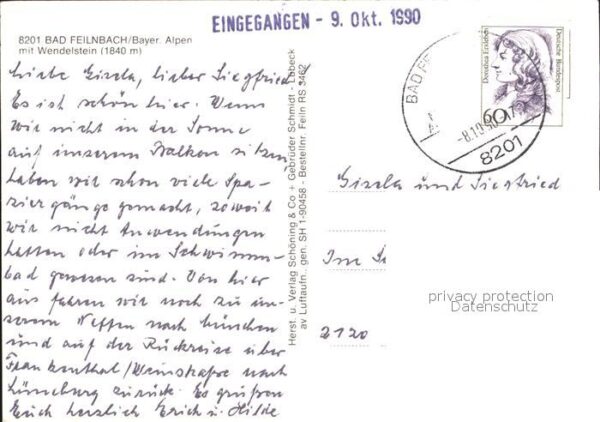 EINGEGANGEN - 9. Okt. 1990
8201 BAD FEILNBACH/Bayer. Alpen
mit Wendelstein (1840 m)
Liebe Gisela, lieber Siegfried
Es ist schön hier. Wenn
wir nicht in der Sonne
auf unserem Balkon sitzen
haben wir schon viele Spa-
ziergänge gemacht, soweit
wir nicht Anwendungen
hatten oder im Schwimm-
bad gewesen sind. Von hier
aus fahren wir noch zu un-
serem Neffen nach München
und auf der Rückreise über
Frankenthal/Weinstraße nach
Lüneburg zurück. Es grüßen
Euch herzlich Erich u. Hilde
Herst. u. Verlag Schöning & Co + Gebrüder Schmidt - Lübeck
av Luftaufn.. gen. SH 1-90458 - Bestellnr. Feiln RS 3462
BAD FE
-8.10.90-17
8201
Dorothea Erxleben
Deutsche Bundespost
60
Gisela und Siegfried
Im
2120
privacy protection
Datenschutz